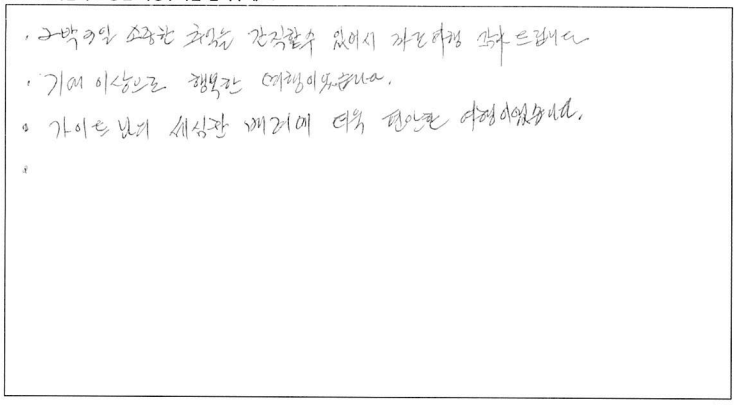 · 2박3일 소중한 추억을 간직할수 있어서 감사 드립니다
· 기대 이상으로 행복한 여행이었습니다.
· 가이드 님의 세심한 배려에 더욱 편안한 여행이었습니다.